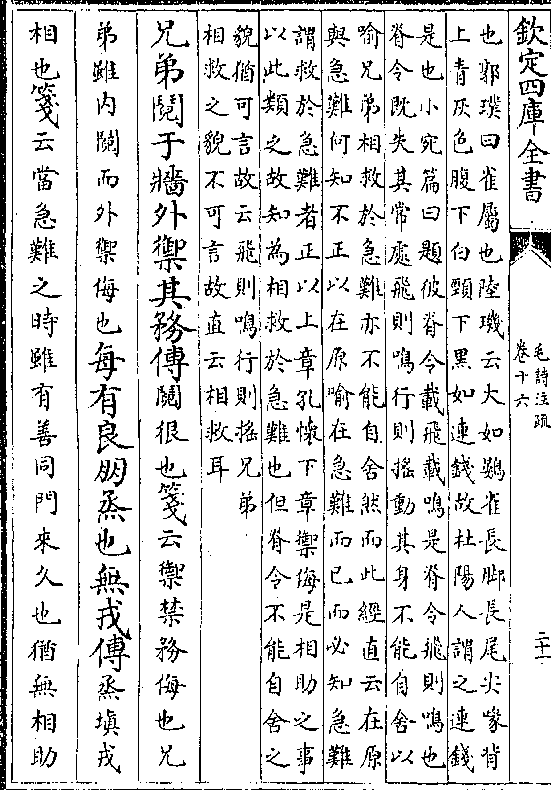 欽定四庫全書
毛詩注疏
卷十六
二十一
也郭璞曰雀屬也陸璣云大如鷃雀長脚長尾尖喙背
上青灰色腹下白頸下黑如連錢故杜陽人謂之連錢
是也小宛篇曰題彼脊令載飛載鳴是脊令飛則鳴也
脊令既失其常處飛則鳴行則搖動其身不能自舍以
喻兄弟相救於急難亦不能自舍然而此經直云在原
與急難何知不正以在原喻在急難而已而必知急難
謂救於急難者正以上章孔懐下章禦侮是相助之事
以此類之故知為相救於急難也但脊令不能自舍之
貌猶可言故云飛則鳴行則搖兄弟
相救之貌不可言故直云相救耳
兄弟鬩于牆外禦其務傳鬩很也箋云禦禁務侮也兄
弟雖内鬩而外禦侮也每有良朋烝也無戎傳烝填戎
相也箋云當急難之時雖有善同門來久也猶無相助